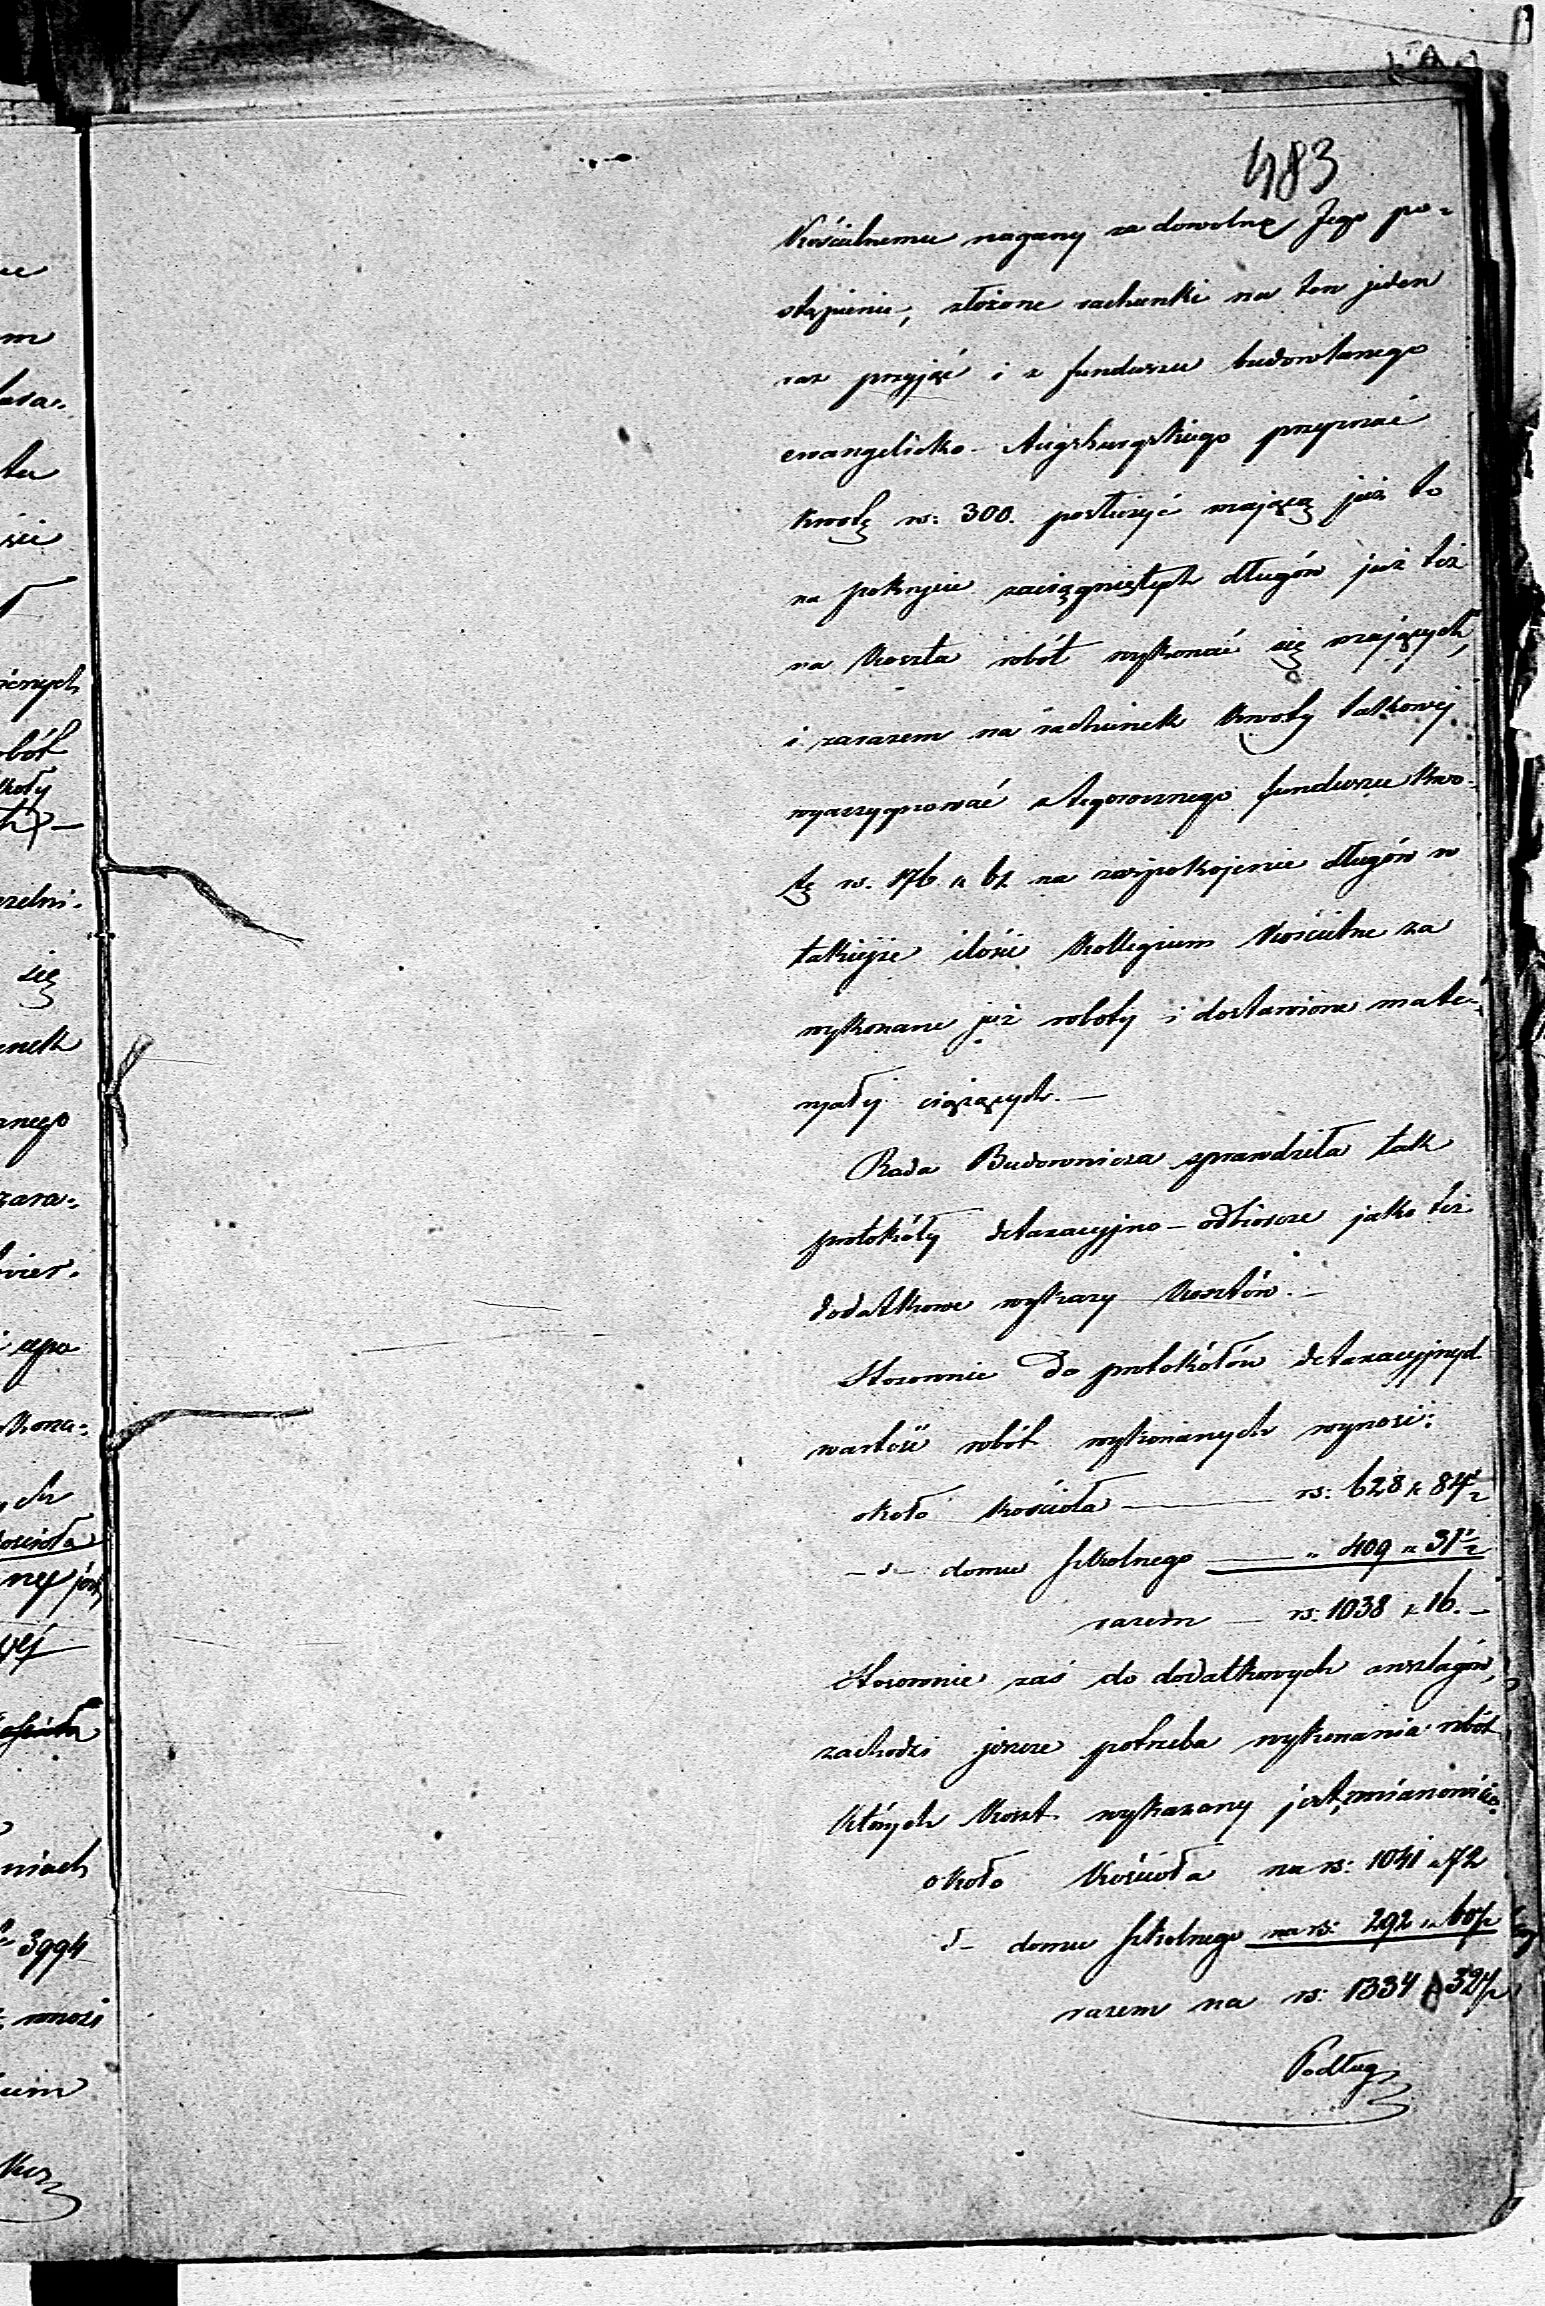 483
Kościelnemu nagany za dowolne Jego po-
stąpienie, złożone rachunki na ten jeden
raz przyjąć i z funduszu budowlanego
ewangelicko-Augsburgskiego przyznać
kwotę rs: 300. posłużyć mającą już to
na pokrycie zaciągniętych długów już też
na koszta robót wykonać się mających,
i zarazem na rachunek kwoty takowej
wyassygnować z tegorocznego funduszu kwo-
tę rs. 176 k 61 na zaspokojenie długów w
takiejże ilości Kollegium Kościelne za
wykonane już roboty i dostawione mate-
ryały ciążących. —
Rada Budownicza sprawdziła tak
protokóły detaxacyjno-odbiorcze jako też
dodatkowe wykazy kosztów. —
Stosownie do protokółów detaxacyjnych
wartość robót wykonanych wynosi:
około kościoła — rs: 628 k 84½
— d — domu szkolnego — „ 409 „ 31½
razem — rs: 1038 k 16. —
Stosownie zaś do dodatkowych anszlagów,
zachodzi jeszcze potrzeba wykonania robót
których koszt wykazany jest, mianowicie
około kościoła na rs: 1041 „ 72
d — domu szkolnego na rs: 292 „ 60½
razem na rs: 1334 k 32½
Podług